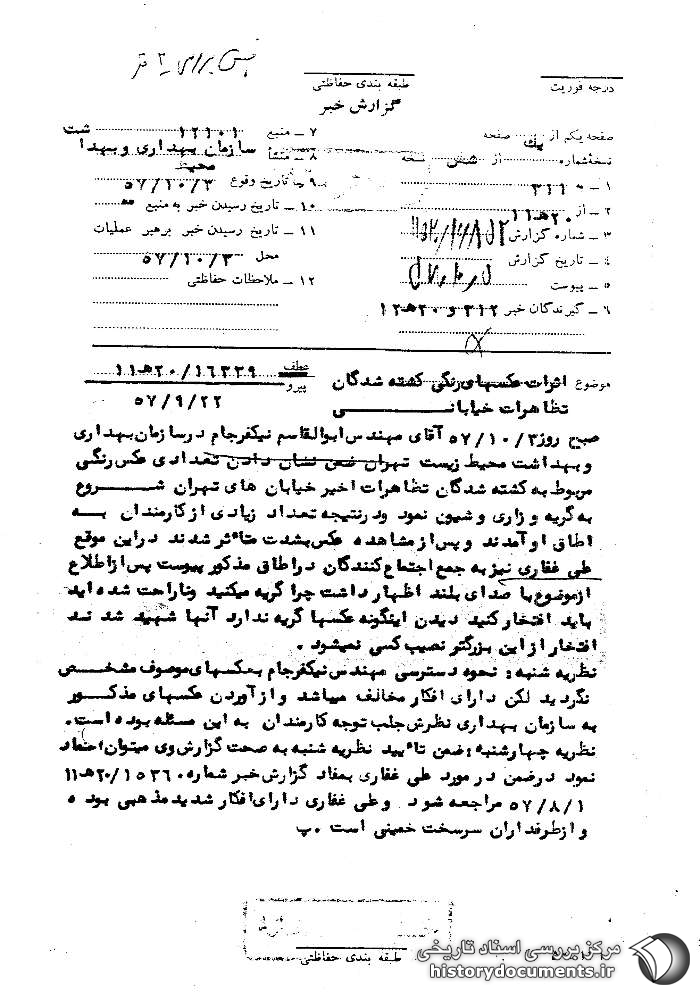 درجه فوریت
طبقه بندی حفاظتی
گزارش خبر
صفحه یکم از یک صفحه
نسخه‌شماره از شش نسخه
۱ – ۳۱۱۰
۲ – از ۲۰هـ۱۱
۳ – شماره گزارش
۴ – تاریخ گزارش
۵ – پیوست
۶ – گیرندگان خبر ۳۱۲ و ۲۰هـ۱۲
۷ – منبع ۱۲۱۰۱ شت
۸ – منشأ سازمان بهداری و بهدا
محیط
۹ – تاریخ وقوع ۵۷/۱۰/۳
۱۰ – تاریخ رسیدن خبر به منبع
۱۱ – تاریخ رسیدن خبر برهبر عملیات
محل ۵۷/۱۰/۳
۱۲ – ملاحظات حفاظتی
موضوع اثرات عکسهای رنگی کشته شدگان
تظاهرات خیابانی
عطف ۲۰/۱۶۳۳۹هـ۱۱
پیرو
۵۷/۹/۲۲
صبح روز ۵۷/۱۰/۳ آقای مهندس ابوالقاسم نیکفرجام در سازمان بهداری
و بهداشت محیط زیست تهران ضمن نشان دادن تعدادی عکس رنگی
مربوط به کشته شدگان تظاهرات اخیر خیابان های تهران شروع
به گریه و زاری و شیون نمود ودر نتیجه تعداد زیادی از کارمندان به
اطاق او آمدند و پس از مشاهده عکس بشدت متأثر شدند در این موقع
علی غفاری نیز به جمع اجتماع کنندگان در اطاق مذکور پیوست پس از اطلاع
از موضوع با صدای بلند اظهار داشت چرا گریه میکنید وناراحت شده اید
باید افتخار کنید دیدن اینگونه عکسها گریه ندارد آنها شهید شدند
افتخار از این بزرگتر نصیب کسی نمیشود .
نظریه شنبه : نحوه دسترسی مهندس نیکفرجام بعکسهای موصوف مشخص
نگردید لکن دارای افکار مخالف میباشد و از آوردن عکسهای مذکور
به سازمان بهداری نظرش جلب توجه کارمندان به این مسئله بوده است.
نظریه چهارشنبه : ضمن تأیید نظریه شنبه به صحت گزارش وی میتوان اعتماد
نمود درضمن در مورد علی غفاری بمفاد گزارش خبر شماره ۲۰/۱۵۳۶۰هـ۱۱
۵۷/۸/۱ مراجعه شود وعلی غفاری دارای افکار شدید مذهبی بوده
و از طرفداران سرسخت خمینی است . پ
طبقه بندی حفاظتی
مرکز بررسی اسناد تاریخی
historydocuments.ir